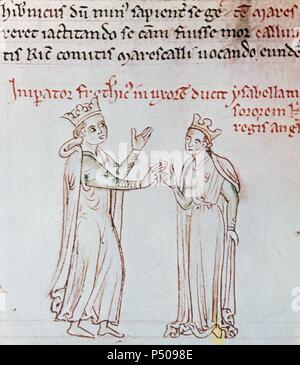 hibnicus dũ min9 sapient se ge
reret iactitando se eam fuisse mor
tis Ric comitis marescalli uocando eunde
Impator frethic9 in uxorē ducit ysabellam
sororem
regis ang
alamy
P5098E